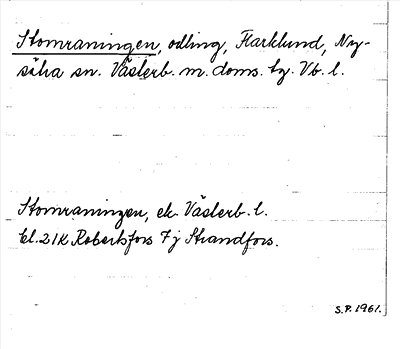 Stomraningen, odling, Flarklund, Ny-
sätra sn. Västerb. m. doms. tg. Vb. l.
Stomraningen, ek. Västerb. l.
bl. 21K Robertsfors 7j Strandfors.
S.P. 1961.